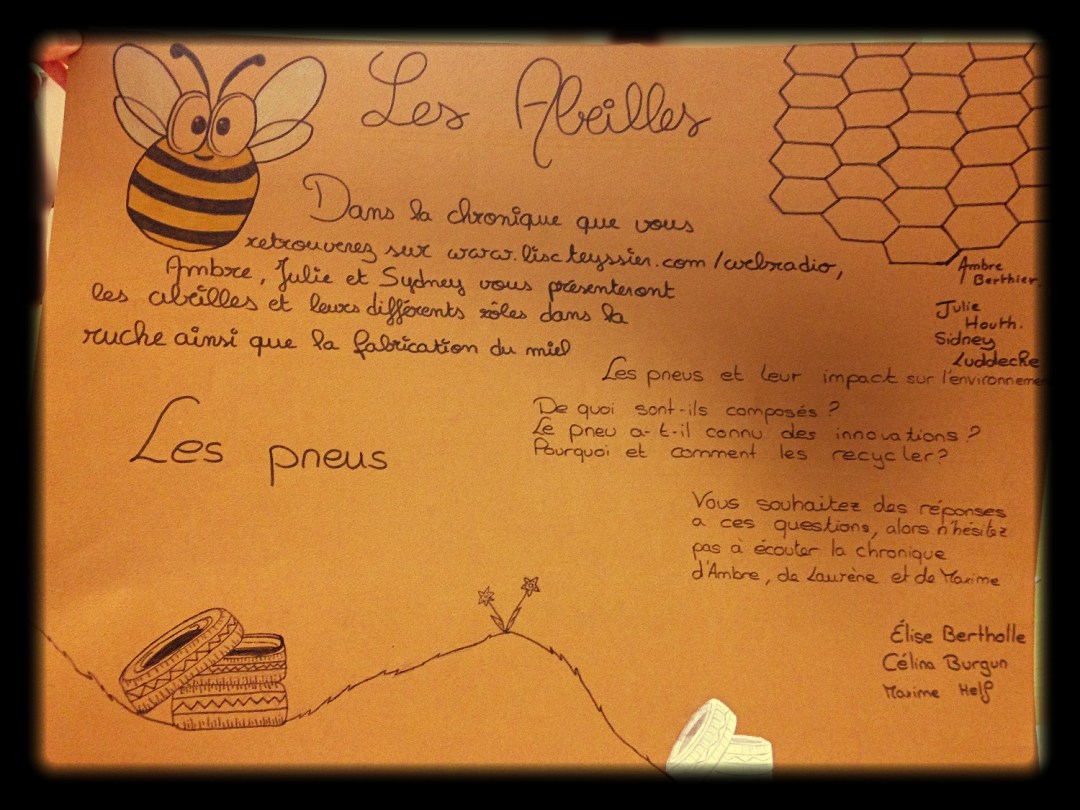 Les Abeilles
Dans la chronique que vous
retrouverez sur www.lisc.teyssier.com/webradio,
Ambre, Julie et Sydney vous présenteront
les abeilles et leurs différents rôles dans la
ruche ainsi que la fabrication du miel
Ambre
Berthier.
Julie
Houth.
Sidney
Luddecke
Les pneus et leur impact sur l'environneme
Les pneus
De quoi sont-ils composés ?
Le pneu a-t-il connu des innovations ?
Pourquoi et comment les recycler?
Vous souhaitez des réponses
a ces questions, alors n'hésitez
pas à écouter la chronique
d'Ambre, de Laurène et de Maxime
Élise Bertholle
Célina Burgun
Maxime Helf